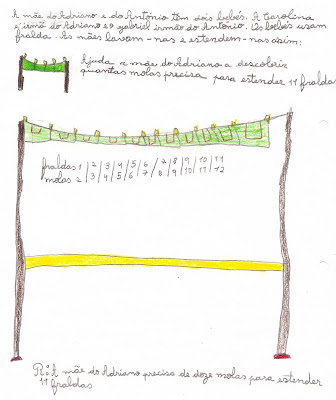 A mãe do Adriano e do António têm dois bebés. A Carolina
é irmã do Adriano e o gabriel irmão do António. Os bebés usam
fralda. As mães lavam-nas e estendem-nas assim:
Ajuda a mãe do Adriano a descobrir
quantas molas precisa para estender 11 fraldas
fraldas 1 | 2 | 3 | 4 | 5 | 6 | 7 | 8 | 9 | 10 | 11
molas 2 | 3 | 4 | 5 | 6 | 7 | 8 | 9 | 10 | 11 | 12
R: A mãe do Adriano precisa de doze molas para estender
11 fraldas